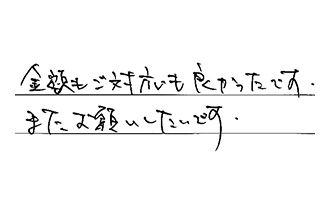 金額もご対応も良かったです.
またお願いしたいです.